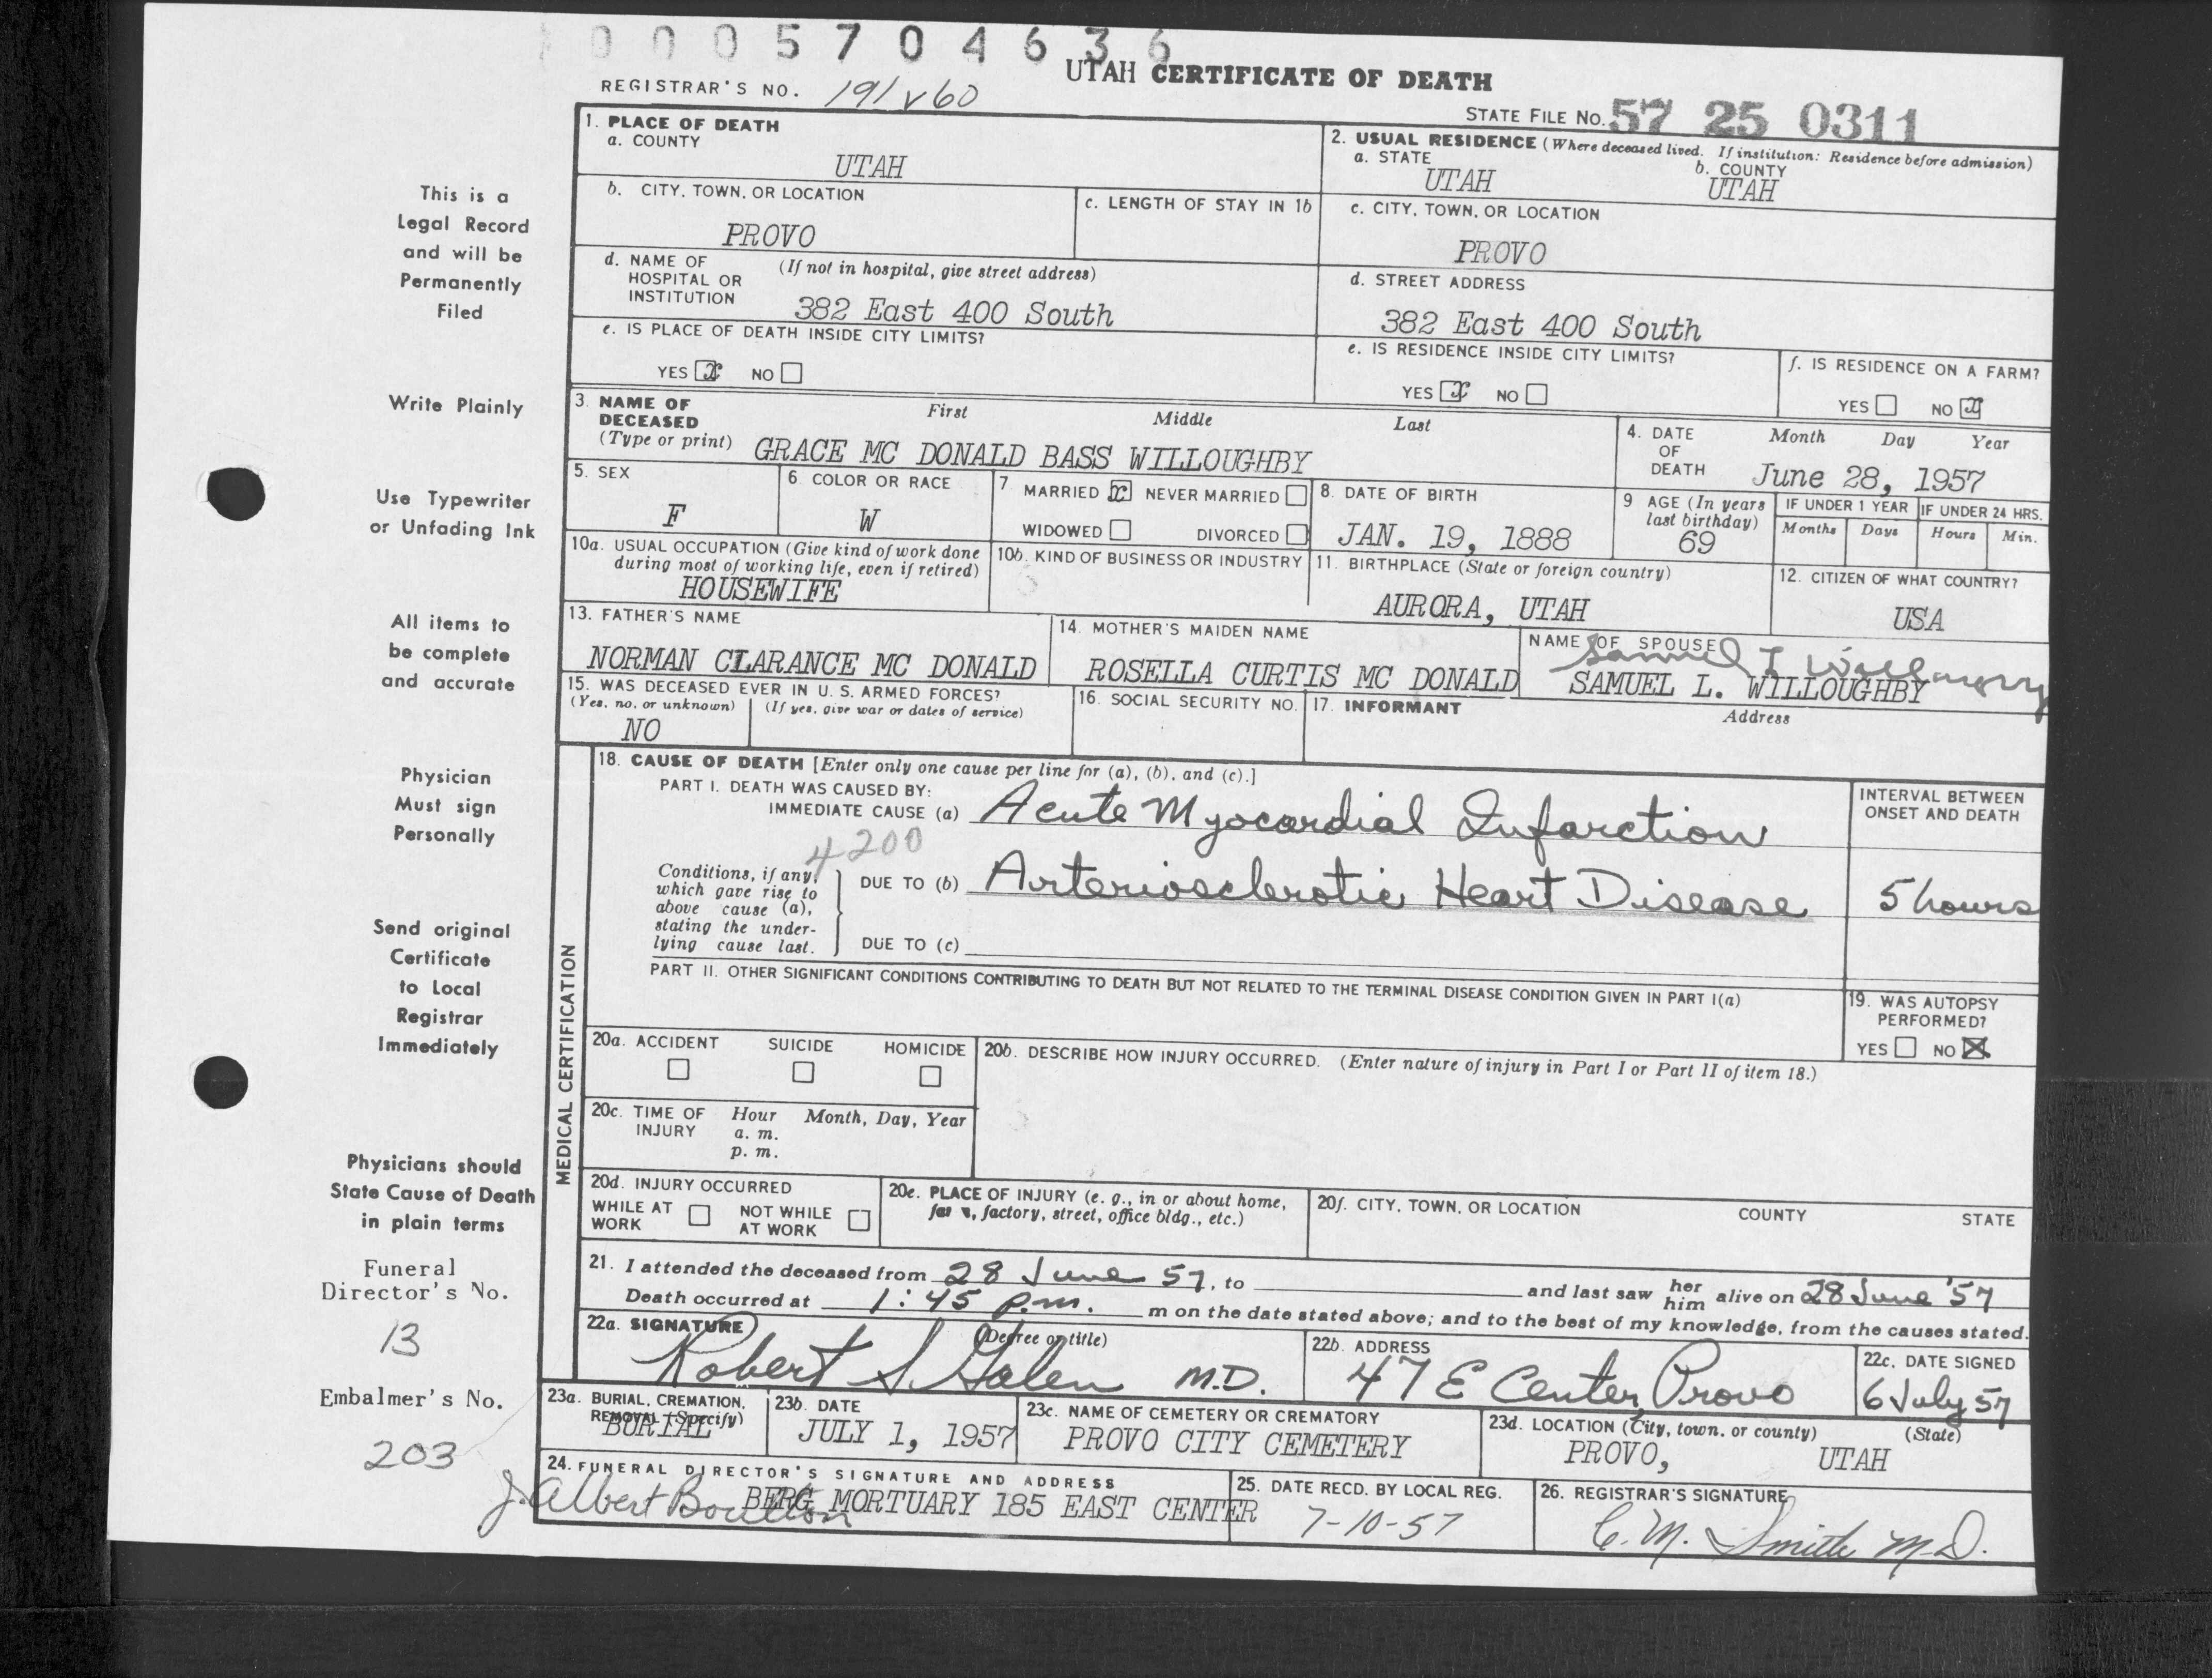 0005704636
UTAH CERTIFICATE OF DEATH
REGISTRAR'S NO. 191 v 60
STATE FILE NO. 57 25 0311
This is a
Legal Record
and will be
Permanently
Filed
Write Plainly
Use Typewriter
or Unfading Ink
All items to
be complete
and accurate
Physician
Must sign
Personally
Send original
Certificate
to Local
Registrar
Immediately
Physicians should
State Cause of Death
in plain terms
Funeral
Director's No.
13
Embalmer's No.
203
1. PLACE OF DEATH
a. COUNTY
UTAH
b. CITY, TOWN, OR LOCATION
PROVO
c. LENGTH OF STAY IN 1b
d. NAME OF (If not in hospital, give street address)
HOSPITAL OR
INSTITUTION 382 East 400 South
e. IS PLACE OF DEATH INSIDE CITY LIMITS?
YES x NO
2. USUAL RESIDENCE (Where deceased lived. If institution: Residence before admission)
a. STATE b. COUNTY
UTAH UTAH
c. CITY, TOWN, OR LOCATION
PROVO
d. STREET ADDRESS
382 East 400 South
e. IS RESIDENCE INSIDE CITY LIMITS?
YES x NO
f. IS RESIDENCE ON A FARM?
YES NO x
3. NAME OF First Middle Last
DECEASED
(Type or print) GRACE MC DONALD BASS WILLOUGHBY
4. DATE Month Day Year
OF
DEATH June 28, 1957
5. SEX
F
6. COLOR OR RACE
W
7 MARRIED x NEVER MARRIED
WIDOWED DIVORCED
8. DATE OF BIRTH
JAN. 19, 1888
9 AGE (In years
last birthday)
69
IF UNDER 1 YEAR IF UNDER 24 HRS.
Months Days Hours Min.
10a. USUAL OCCUPATION (Give kind of work done
during most of working life, even if retired)
HOUSEWIFE
10b. KIND OF BUSINESS OR INDUSTRY
11. BIRTHPLACE (State or foreign country)
AURORA, UTAH
12. CITIZEN OF WHAT COUNTRY?
USA
13. FATHER'S NAME
NORMAN CLARANCE MC DONALD
14. MOTHER'S MAIDEN NAME
ROSELLA CURTIS MC DONALD
NAME OF SPOUSE
Samuel L Willoughby
SAMUEL L. WILLOUGHBY
15. WAS DECEASED EVER IN U. S. ARMED FORCES?
(Yes, no, or unknown) (If yes, give war or dates of service)
NO
16. SOCIAL SECURITY NO.
17. INFORMANT Address
MEDICAL CERTIFICATION
18. CAUSE OF DEATH [Enter only one cause per line for (a), (b), and (c).]
PART I. DEATH WAS CAUSED BY:
IMMEDIATE CAUSE (a) Acute Myocardial Infarction
4200
Conditions, if any,
which gave rise to
above cause (a),
stating the under-
lying cause last.
DUE TO (b) Arteriosclerotic Heart Disease
DUE TO (c)
INTERVAL BETWEEN
ONSET AND DEATH
5 hours
PART II. OTHER SIGNIFICANT CONDITIONS CONTRIBUTING TO DEATH BUT NOT RELATED TO THE TERMINAL DISEASE CONDITION GIVEN IN PART I(a)
19. WAS AUTOPSY
PERFORMED?
YES NO X
20a. ACCIDENT SUICIDE HOMICIDE
20b. DESCRIBE HOW INJURY OCCURRED. (Enter nature of injury in Part I or Part II of item 18.)
20c. TIME OF Hour Month, Day, Year
INJURY a. m.
p. m.
20d. INJURY OCCURRED
WHILE AT NOT WHILE
WORK AT WORK
20e. PLACE OF INJURY (e. g., in or about home,
farm, factory, street, office bldg., etc.)
20f. CITY, TOWN, OR LOCATION COUNTY STATE
21. I attended the deceased from 28 June 57, to and last saw her him alive on 28 June '57
Death occurred at 1:45 p.m. m on the date stated above; and to the best of my knowledge, from the causes stated.
22a. SIGNATURE (Degree or title)
Robert S. Galen M.D.
22b. ADDRESS
47 E Center, Provo
22c. DATE SIGNED
6 July 57
23a. BURIAL, CREMATION,
REMOVAL (Specify)
BURIAL
23b. DATE
JULY 1, 1957
23c. NAME OF CEMETERY OR CREMATORY
PROVO CITY CEMETERY
23d. LOCATION (City, town, or county) (State)
PROVO, UTAH
24. FUNERAL DIRECTOR'S SIGNATURE AND ADDRESS
J. Albert Boulton BERG MORTUARY 185 EAST CENTER
25. DATE RECD. BY LOCAL REG.
7-10-57
26. REGISTRAR'S SIGNATURE
C. M. Smith M.D.